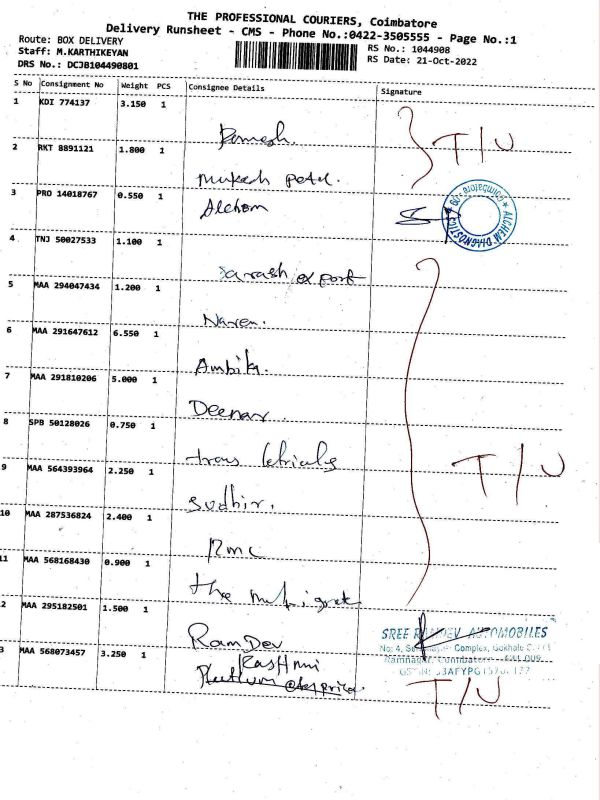 THE PROFESSIONAL COURIERS, Coimbatore
Delivery Runsheet - CMS - Phone No.:0422-3505555 - Page No.:1
Route: BOX DELIVERY
RS No.: 1044908
Staff: M.KARTHIKEYAN
RS Date: 21-Oct-2022
DRS No.: DCJB104490801
S No Consignment No Weight PCS Consignee Details Signature
1 KDI 774137 3.150 1 Ramesh.
T/U
2 RKT 8891121 1.800 1 Mukesh patel.
3 PRO 14018767 0.550 1 Alchem
ALCHEM DIAGNOSTICS Coimbatore
4 TNJ 50027533 1.100 1 export
5 MAA 294047434 1.200 1 Naren.
6 MAA 291647612 6.550 1 Ambika.
7 MAA 291810206 5.000 1 Deenar
8 SPB 50128026 0.750 1 trans
T/U
9 MAA 564393964 2.250 1 Sudhir.
10 MAA 287536824 2.400 1 RMC
11 MAA 568168430 0.900 1 the
2 MAA 295182501 1.500 1 RamDev
SREE RAMDEV AUTOMOBILES
No: 4, Complex, Gokhale
Ramnagar, Coimbatore - 641 009
3 MAA 568073457 3.250 1 Rashmi
T/U